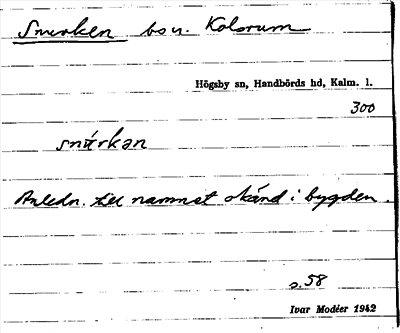 Snurken bs u. Kolsrum
Högsby sn, Handbörds hd, Kalm. l.
300
snúrkən
Anledn. till namnet okänd i bygden.
s. 58
Ivar Modéer 1942